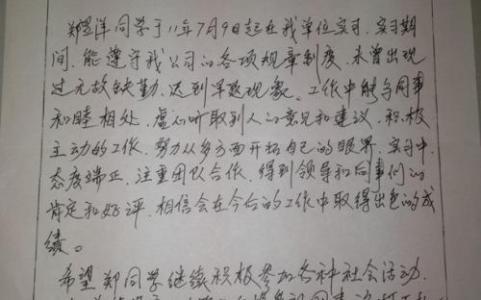 郑昱洋同学于11年7月9日起在我单位实习,实习期
间,能遵守我公司的各项规章制度,未曾出现
过无故缺勤,迟到早退现象。工作中能与同事
和睦相处,虚心听取别人的意见和建议,积极
主动的工作,努力从多方面开拓自己的眼界,实习中,
态度端正,注重团队合作,得到领导和同事们的
肯定和好评,相信会在今后的工作中取得出色的成
绩。
希望郑同学继续积极参加各种社会活动,